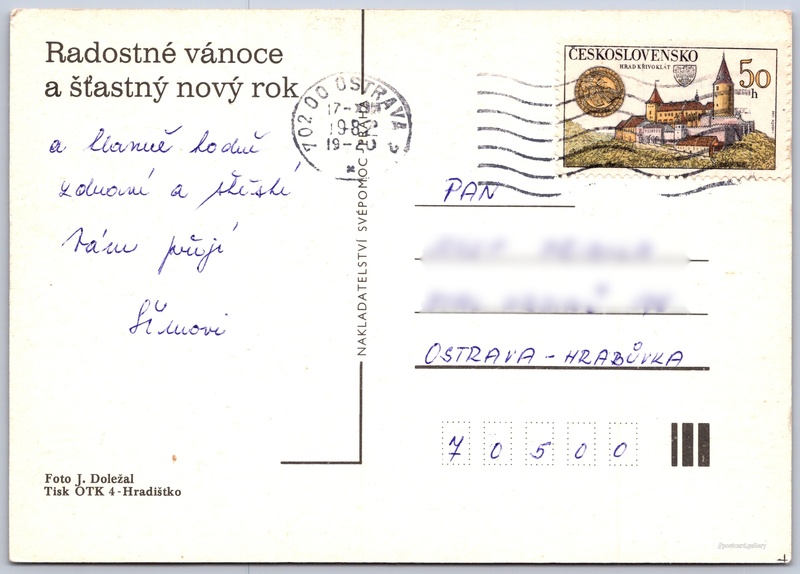 Radostné vánoce
a šťastný nový rok
a hlavně hodně
zdraví a štěstí
Vám přejí
Šímovi
Foto J. Doležal
Tisk OTK 4-Hradištko
NAKLADATELSTVÍ SVÉPOMOC PRAHA
702 00 OSTRAVA 2
1982
ČESKOSLOVENSKO
HRAD KŘIVOKLÁT
50 h
PAN
OSTRAVA - HRABŮVKA
7 0 5 0 0
@postcard.gallery